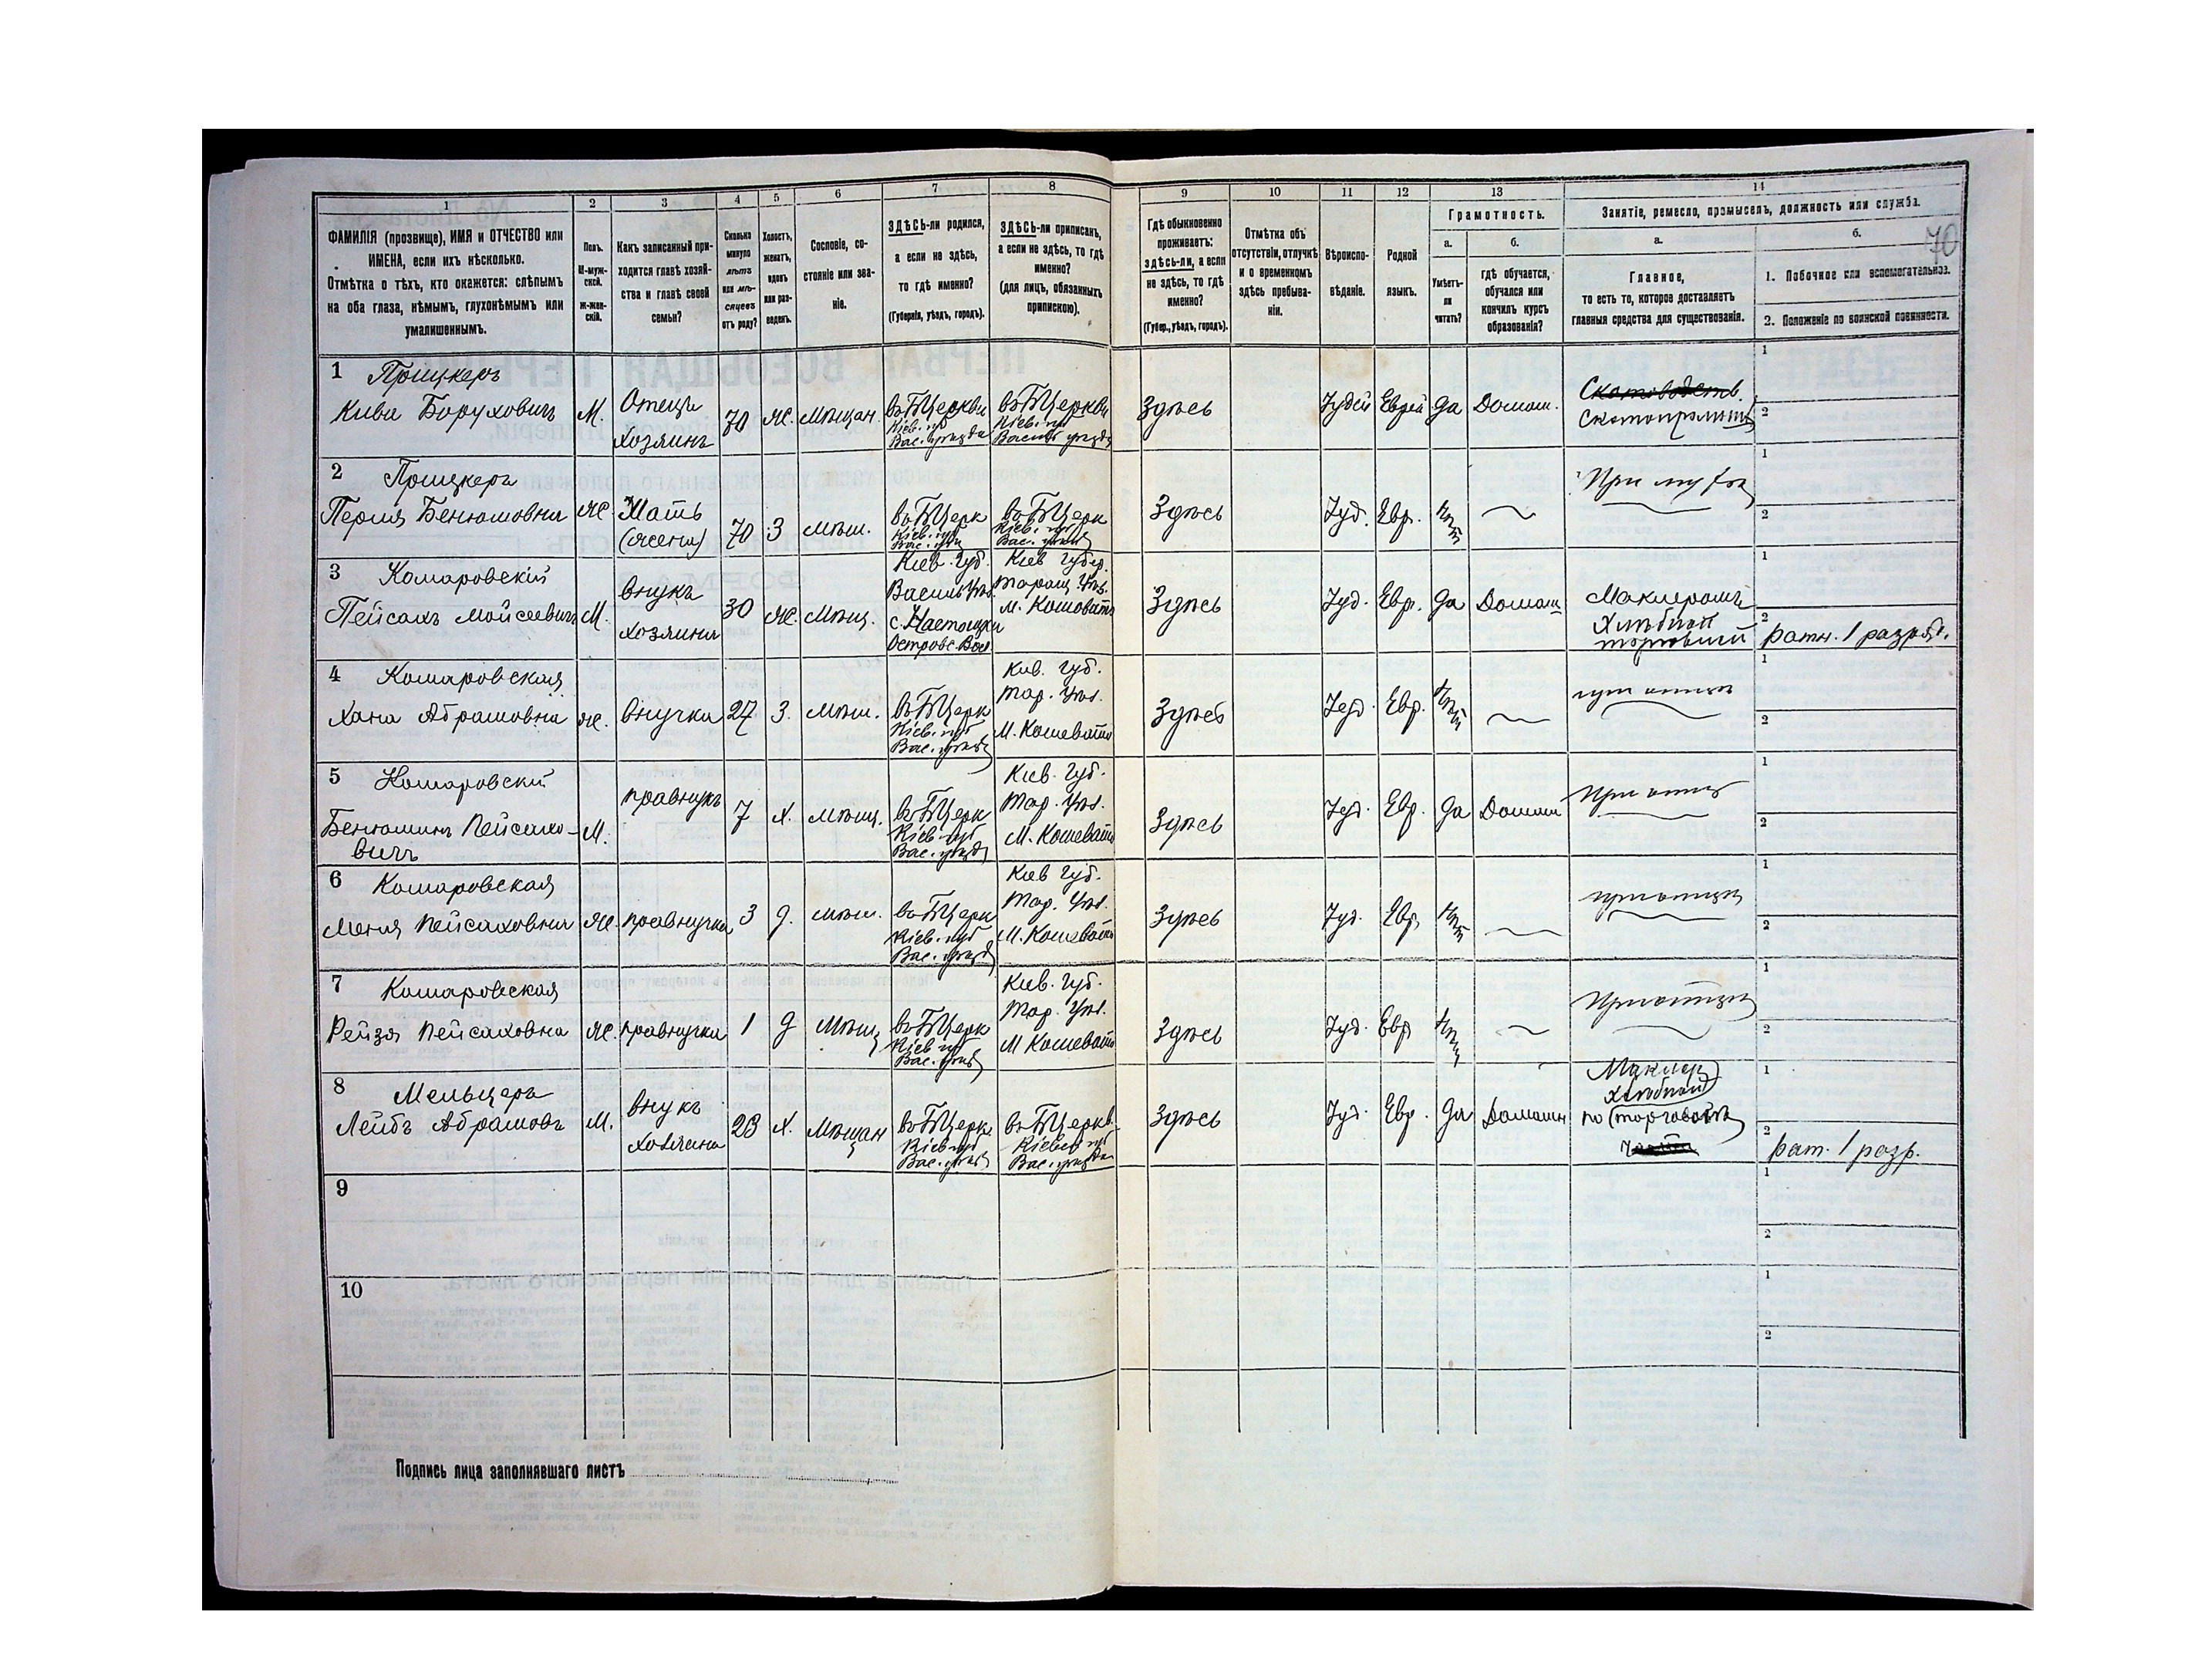 1
2
3
4
5
6
7
8
9
10
11
12
13
14
ФАМИЛІЯ (прозвище), ИМЯ и ОТЧЕСТВО или
ИМЕНА, если ихъ нѣсколько.
Отмѣтка о тѣхъ, кто окажется: слѣпымъ
на оба глаза, нѣмымъ, глухонѣмымъ или
умалишеннымъ.
Полъ.
М-муж-
ской.
Ж-жен-
скій.
Какъ записанный при-
ходится главѣ хозяй-
ства и главѣ своей
семьи?
Сколько
минуло
лѣтъ
или мѣ-
сяцевъ
отъ роду?
Холостъ,
женатъ,
вдовъ
или раз-
веденъ.
Сословіе, со-
стояніе или зва-
ніе.
ЗДѢСЬ-ли родился,
а если не здѣсь,
то гдѣ именно?
(Губернія, уѣздъ, городъ).
ЗДѢСЬ-ли приписанъ,
а если не здѣсь, то гдѣ
именно?
(для лицъ, обязанныхъ
припискою).
Гдѣ обыкновенно
проживаетъ:
здѣсь-ли, а если
не здѣсь, то гдѣ
именно?
(Губер., уѣздъ, городъ).
Отмѣтка объ
отсутствіи, отлучкѣ
и о временномъ
здѣсь пребыва-
ніи.
Вѣроиспо-
вѣданіе.
Родной
языкъ.
Грамотность.
а.
б.
Умѣетъ-
ли
читать?
гдѣ обучается,
обучался или
кончилъ курсъ
образованія?
Занятіе, ремесло, промыселъ, должность или служба.
а.
б.
70
Главное,
то есть то, которое доставляетъ
главныя средства для существованія.
1. Побочное или вспомогательное.
2. Положеніе по воинской повинности.
1
Прицкеръ
Кива Боруховичъ
М.
Отецъ
хозяинъ
70
Ж.
Мѣщан.
въ БЦеркви
Кіев. губ
Вас. уѣзда
въ БЦеркви
Кіев. губ
Васил. уѣзда
Здѣсь
Іудей
Еврей
Да
Домаш.
1
2
2
Прицкеръ
Перля Бенюмовна
Ж
Мать
(жена)
70
З
мѣщ.
въ БЦерк
Кіев. губ
Вас. уѣзд
въ БЦерк
Кіев. губ
Вас. уѣзд
Здѣсь
Іуд.
Евр.
Нѣт
При мужѣ
1
2
3
Комаровскій
Пейсахъ Мойсеевичъ
М.
внукъ
хозяина
30
Ж.
Мѣщ.
Кіев. Губ.
Васильк. Уѣз.
Кіев Губер.
Таращ. Уѣз.
м. Кошовата
Здѣсь
Іуд.
Евр.
Да
Домаш
Маклеромъ
Хлѣбной
торговли
1
2
ратн. 1 разряд.
4
Комаровская
Хана Абрамовна
Ж.
внучка
27
З.
мѣщ.
въ БЦерк
Кіев. губ
Вас. уѣзд
Кив. Губ.
Тар. Уѣз.
М. Кошевата
Здѣсь
Іуд.
Евр.
Нѣт
1
2
5
Комаровскій
Бенюминъ Пейсахо-
вичъ
М.
правнукъ
7
Х.
мѣщ.
въ БЦерк
Кіев. губ
Вас. уѣзд
Кіев. Губ.
Тар. Уѣз.
М. Кошевата
Здѣсь
Іуд.
Евр.
Да
Домаш
При отцѣ
1
2
6
Комаровская
Меня Пейсаховна
Ж.
правнучка
3
д.
мѣщ.
въ БЦерк
Кіев. губ
Вас. уѣзд
Кіев Губ.
Тар. Уѣз.
М. Кошевата
Здѣсь
Іуд.
Евр.
Нѣт
при отцѣ
1
2
7
Комаровская
Рейзя Пейсаховна
Ж.
правнучка
1
д
Мѣщ
въ БЦерк
Кіев губ
Вас. уѣзд
Кив. Губ.
Тар. Уѣз.
М Кошевата
Здѣсь
Іуд.
Евр
Нѣт
При отцѣ
1
2
8
Мельцеръ
Лейбъ Абрамовъ
М.
внукъ
хозяина
23
Х.
Мѣщан
въ БЦерк
Кіев губ
Вас. уѣзд
въ БЦеркв.
Кіевск губ
Вас. уѣзда
Здѣсь
Іуд.
Евр.
Да
Домашн
Маклер
хлѣбной
по торговлѣ
1
2
рат. 1 разр.
9
1
2
10
1
2
Подпись лица заполнявшаго листъ